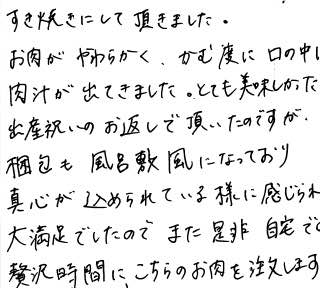 すき焼きにして頂きました。
お肉がやわらかく、かむ度に口の中に
肉汁が出てきました。とても美味しかった
出産祝いのお返しで頂いたのですが、
梱包も風呂敷風になっており
真心が込められている様に感じられ
大満足でしたのでまた是非自宅で
贅沢時間に、こちらのお肉を注文します